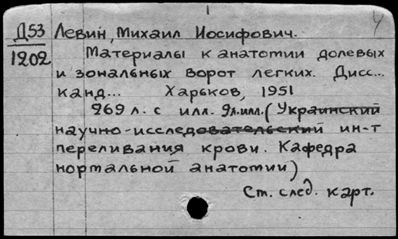 Д53 Левин, Михаил Иосифович.
1202
Материалы к анатомии долевых
и зональных ворот легких. Дисс...
канд... Харьков, 1951
269 л. с илл. 9л.илл. (Украинский
научно-исследовательский ин-т
переливания крови. Кафедра
нормальной анатомии)
Ст. след. карт.